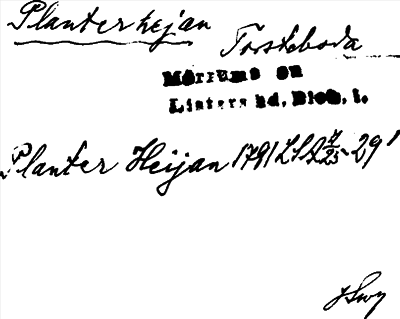 Planterhejan
Torsteboda
Mörrums sn
Listers hd, Blek. l.
Planter Heijan 1781 LSA 4/25 29